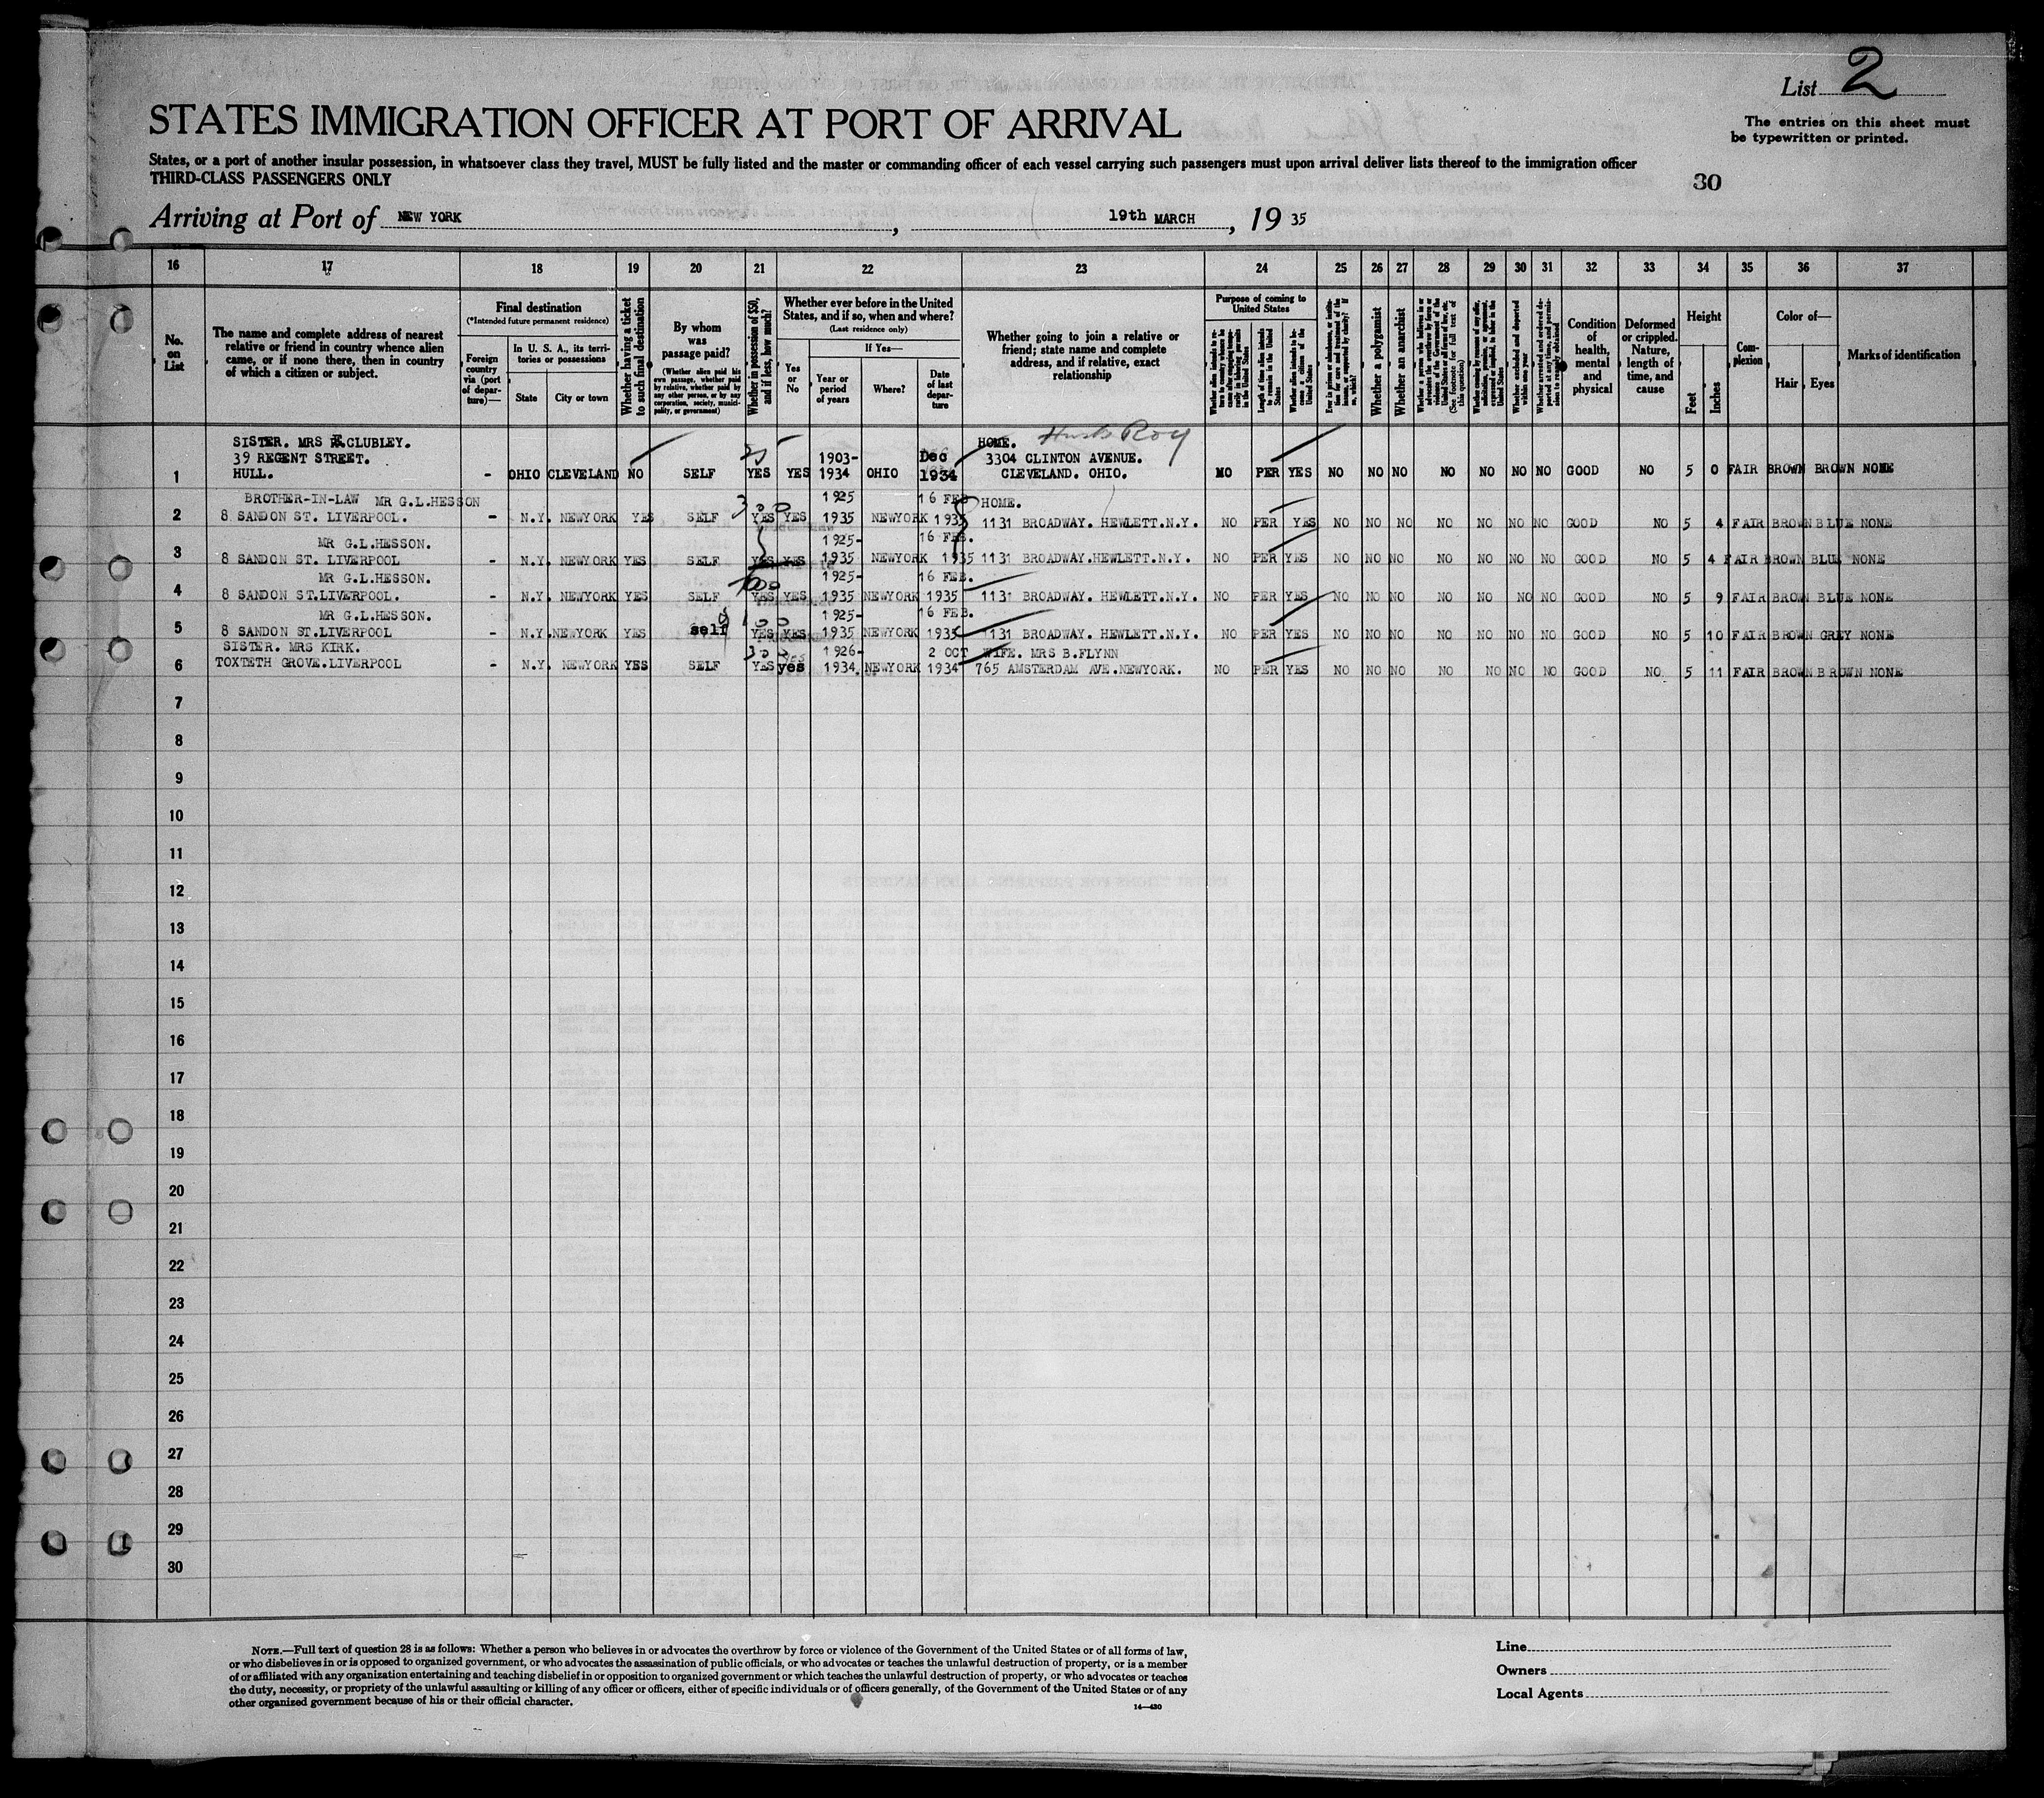 List 2
STATES IMMIGRATION OFFICER AT PORT OF ARRIVAL
The entries on this sheet must
be typewritten or printed.
States, or a port of another insular possession, in whatsoever class they travel, MUST be fully listed and the master or commanding officer of each vessel carrying such passengers must upon arrival deliver lists thereof to the immigration officer
THIRD-CLASS PASSENGERS ONLY
30
Arriving at Port of NEW YORK, 19th MARCH, 19 35
16 17 18 19 20 21 22 23 24 25 26 27 28 29 30 31 32 33 34 35 36 37
No. on List
The name and complete address of nearest relative or friend in country whence alien came, or if none there, then in country of which a citizen or subject.
Final destination
(*Intended future permanent residence)
Foreign country via (port of departure)—
In U. S. A., its territories or possessions
State
City or town
Whether having a ticket to such final destination
By whom was passage paid?
(Whether alien paid his own passage, whether paid by relative, whether paid by any other person, or by any corporation, society, municipality, or government)
Whether in possession of $50, and if less, how much?
Whether ever before in the United States, and if so, when and where?
(Last residence only)
Yes or No
If Yes—
Year or period of years
Where?
Date of last departure
Whether going to join a relative or friend; state name and complete address, and if relative, exact relationship
Purpose of coming to United States
Length of time alien intends to remain in the United States
Whether alien intends to become a citizen of the United States
Whether a polygamist
Whether an anarchist
Condition of health, mental and physical
Deformed or crippled. Nature, length of time, and cause
Height
Feet
Inches
Complexion
Color of—
Hair
Eyes
Marks of identification
SISTER. MRS CLUBLEY. HOME. Roy
39 REGENT STREET. 1903- Dec 3304 CLINTON AVENUE.
1 HULL. - OHIO CLEVELAND NO SELF 25 YES YES 1934 OHIO 1934 CLEVELAND. OHIO. NO PER YES NO NO NO NO NO NO NO GOOD NO 5 0 FAIR BROWN BROWN NONE
BROTHER-IN-LAW MR G.L.HESSON 300 1925 16 FEB HOME.
2 8 SANDON ST. LIVERPOOL. - N.Y. NEWYORK YES SELF YES YES 1935 NEWYORK 1935 1131 BROADWAY. HEWLETT.N.Y. NO PER YES NO NO NO NO NO NO NO GOOD NO 5 4 FAIR BROWN BLUE NONE
MR G.L.HESSON. 1925- 16 FEB.
3 8 SANDON ST. LIVERPOOL - N.Y. NEWYORK YES SELF YES YES 1935 NEWYORK 1935 1131 BROADWAY.HEWLETT.N.Y. NO PER YES NO NO NO NO NO NO NO GOOD NO 5 4 FAIR BROWN BLUE NONE
MR G.L.HESSON. 1925- 16 FEB.
4 8 SANDON ST.LIVERPOOL. - N.Y. NEWYORK YES SELF YES YES 1935 NEWYORK 1935 1131 BROADWAY. HEWLETT.N.Y. NO PER YES NO NO NO NO NO NO NO GOOD NO 5 9 FAIR BROWN BLUE NONE
MR G.L.HESSON. 100 1925- 16 FEB.
5 8 SANDON ST.LIVERPOOL - N.Y. NEWYORK YES self YES YES 1935 NEWYORK 1935 1131 BROADWAY. HEWLETT.N.Y. NO PER YES NO NO NO NO NO NO NO GOOD NO 5 10 FAIR BROWN GREY NONE
SISTER. MRS KIRK. 300 1926- 2 OCT WIFE. MRS B.FLYNN
6 TOXTETH GROVE.LIVERPOOL - N.Y. NEWYORK YES SELF YES yes 1934 NEWYORK 1934 765 AMSTERDAM AVE.NEWYORK. NO PER YES NO NO NO NO NO NO NO GOOD NO 5 11 FAIR BROWN BROWN NONE
7
8
9
10
11
12
13
14
15
16
17
18
19
20
21
22
23
24
25
26
27
28
29
30
NOTE.—Full text of question 28 is as follows: Whether a person who believes in or advocates the overthrow by force or violence of the Government of the United States or of all forms of law,
or who disbelieves in or is opposed to organized government, or who advocates the assassination of public officials, or who advocates or teaches the unlawful destruction of property, or is a member
of or affiliated with any organization entertaining and teaching disbelief in or opposition to organized government or which teaches the unlawful destruction of property, or who advocates or teaches
the duty, necessity, or propriety of the unlawful assaulting or killing of any officer or officers, either of specific individuals or of officers generally, of the Government of the United States or of any
other organized government because of his or their official character.
14—430
Line
Owners
Local Agents